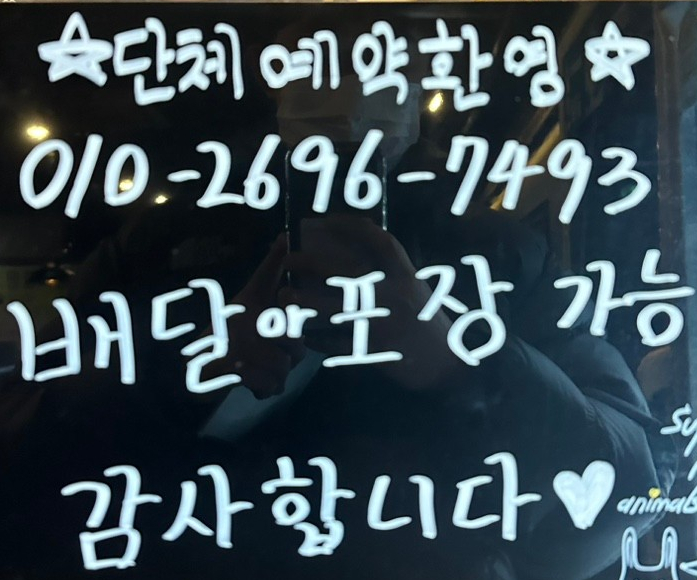 ☆단체 예약환영☆
010-2696-7493
배달or포장 가능
감사합니다♥